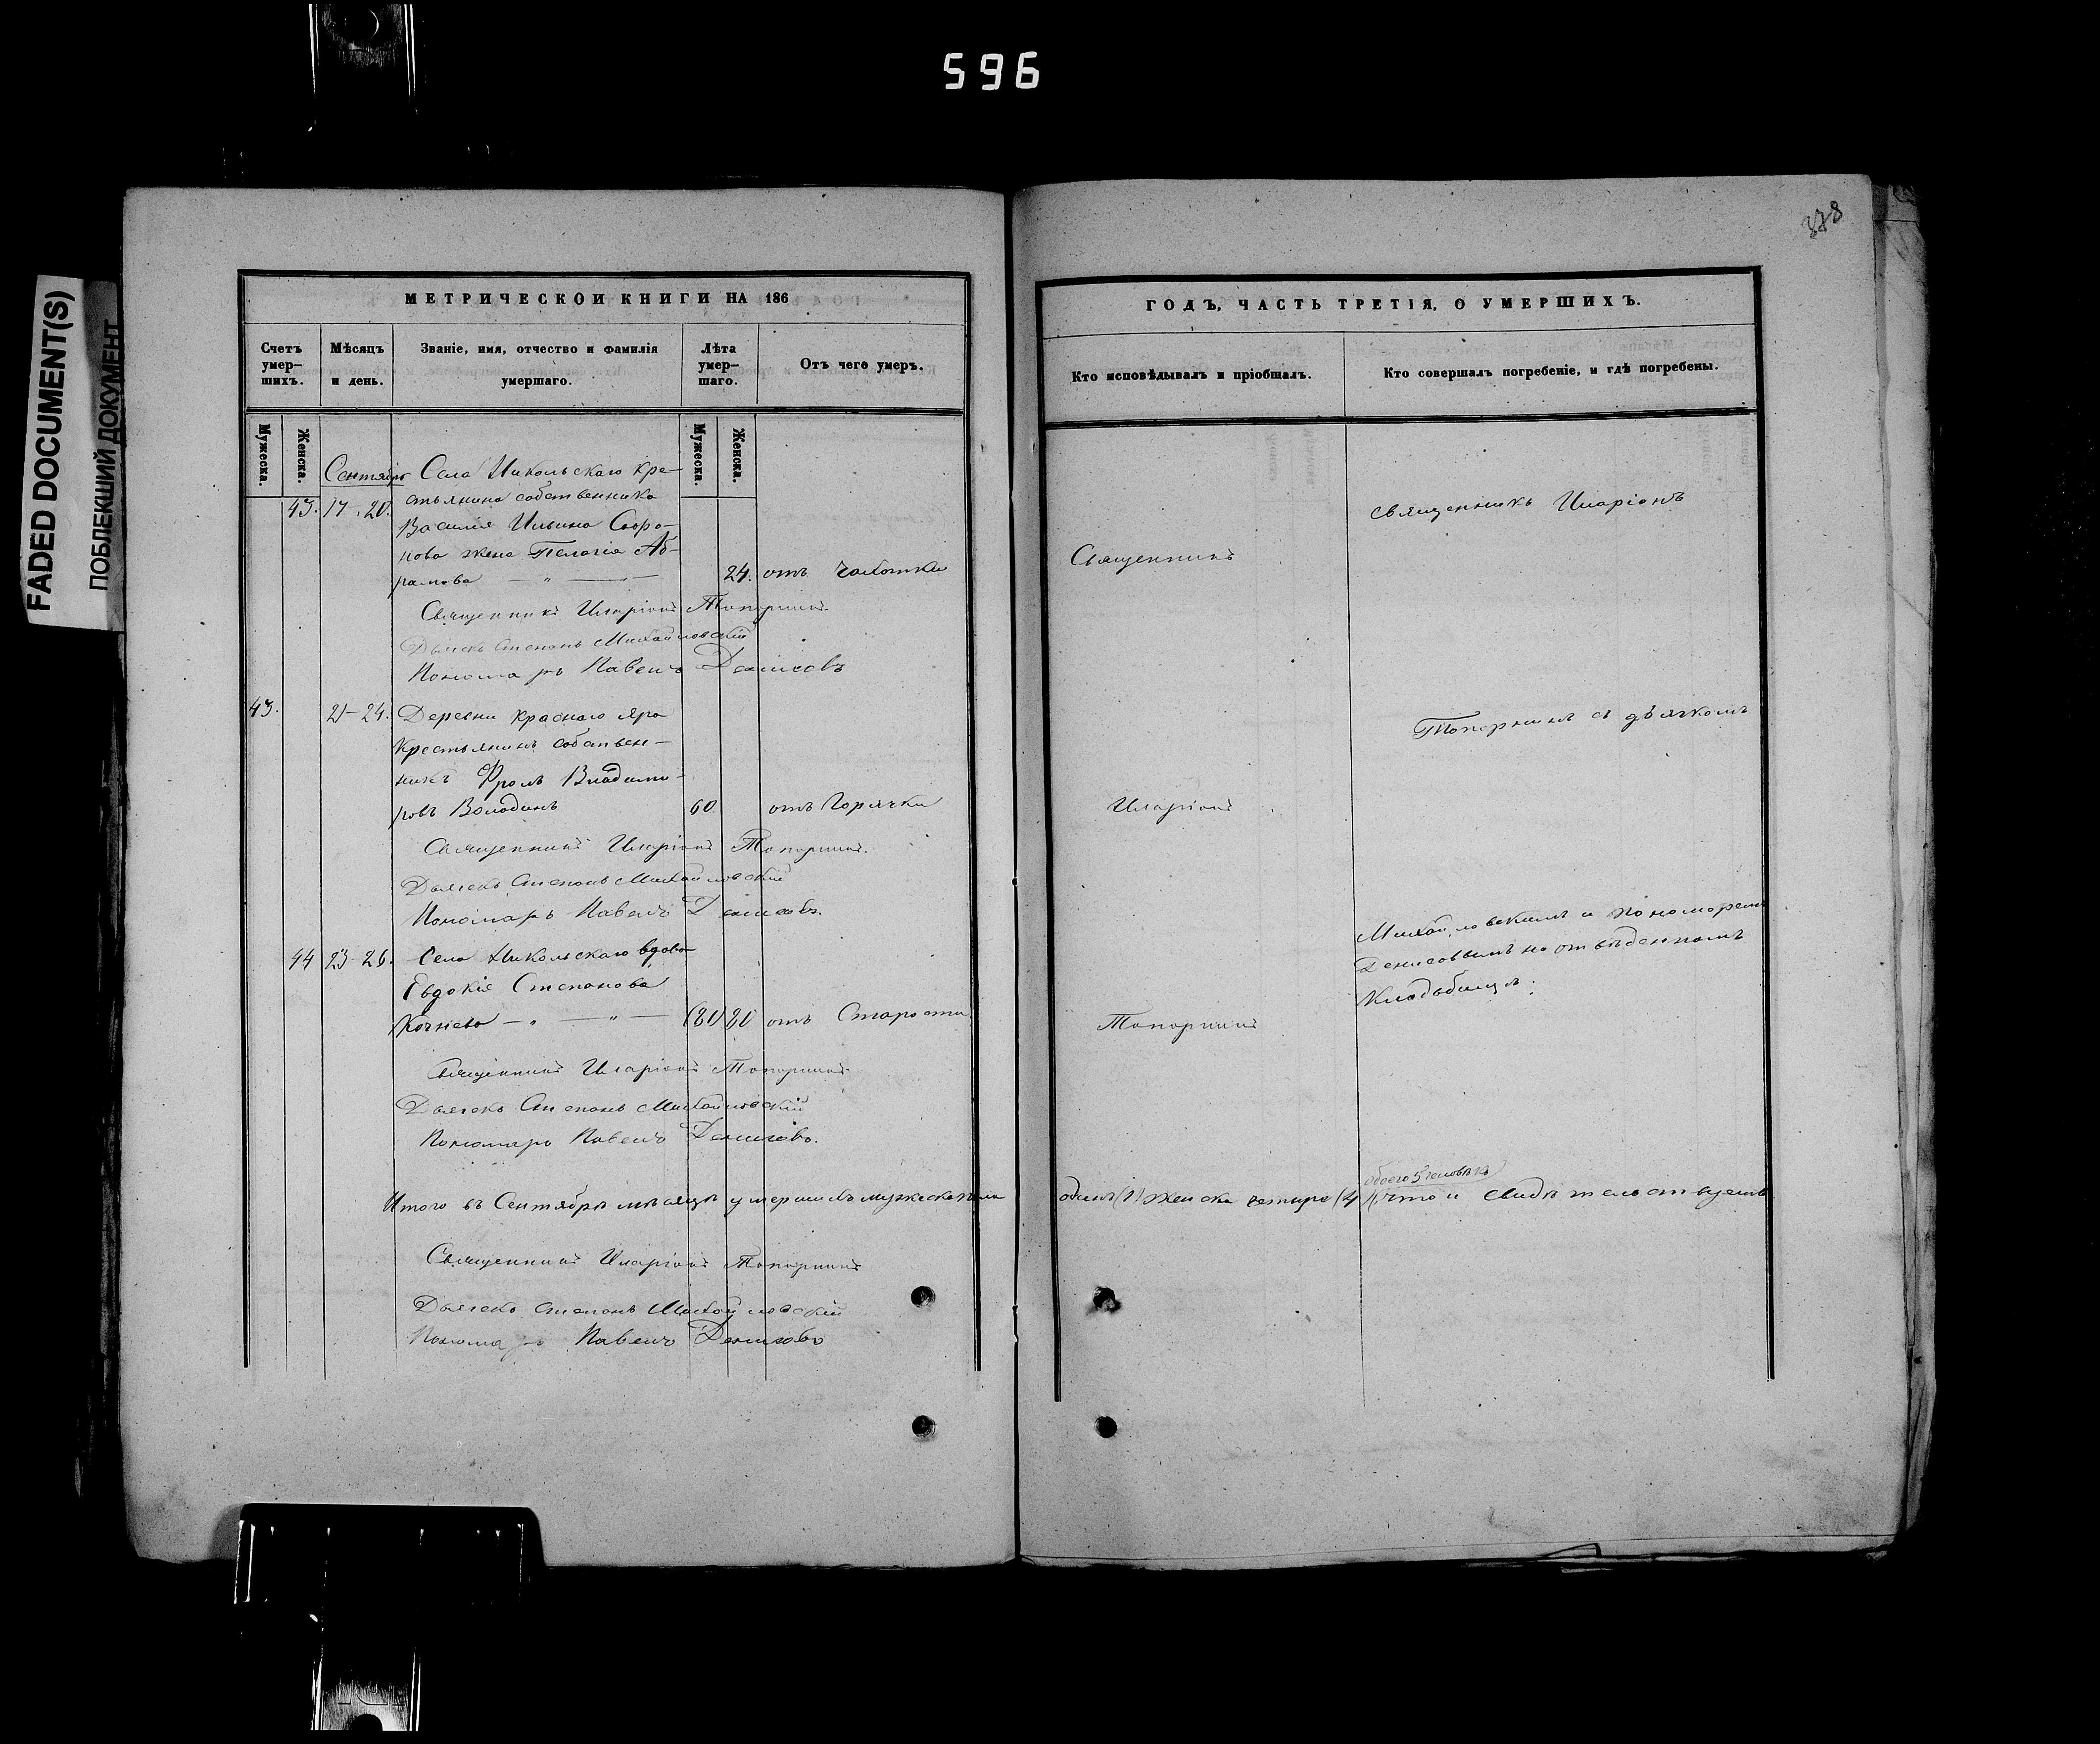 596
FADED DOCUMENT(S)
ПОБЛЕКШИЙ ДОКУМЕНТ
378
МЕТРИЧЕСКОЙ КНИГИ НА 186
Счетъ умер-
шихъ.
Мѣсяцъ
и день.
Званіе, имя, отчество и фамилія
умершаго.
Лѣта
умер-
шаго.
Отъ чего умеръ.
Мужеска.
Женска.
Мужеска.
Женска.
Сентябрь
Села Никольскаго кре-
43. 17. 20. стьянина собственника
Василія Ильина Сафро-
нова жена Пелагія Аб-
рамова 24. отъ чахотки
Священникъ Иларіонъ Топорнинъ
Дьячекъ Степанъ Михайловскій
Пономарь Павелъ Денисовъ
43. 21-24. Деревни Краснаго Яра
Крестьянинъ собствен-
никъ Фролъ Владими-
ровъ Володинъ 60 отъ Горячки
Священникъ Иларіонъ Топорнинъ.
Дьячекъ Степанъ Михайловскій
Пономарь Павелъ Денисовъ.
44 23-26. Села Никольскаго вдова
Евдокія Степанова
(80) 80 отъ Старости
Священникъ Иларіонъ Топорнинъ
Дьячекъ Степанъ Михайловскій
Пономарь Павелъ Денисовъ.
Итого въ Сентябрѣ мѣсяцѣ умершихъ мужеска пола
Священникъ Иларіонъ Топорнинъ
Дьячекъ Степанъ Михайловскій
Пономарь Павелъ Денисовъ
ГОДЪ, ЧАСТЬ ТРЕТІЯ, О УМЕРШИХЪ.
Кто исповѣдывалъ и пріобщалъ.
Кто совершалъ погребеніе, и гдѣ погребены.
Священникъ
Иларіонъ
Топорнинъ
священникъ Иларіонъ
Топорнинъ съ дьячкомъ
Михайловскимъ и пономаремъ
Денисовымъ на отвѣденномъ
Кладбищѣ.
обоего 5 человѣкъ
одинъ (1) женска четыре (4) что и свидѣтельствуемъ